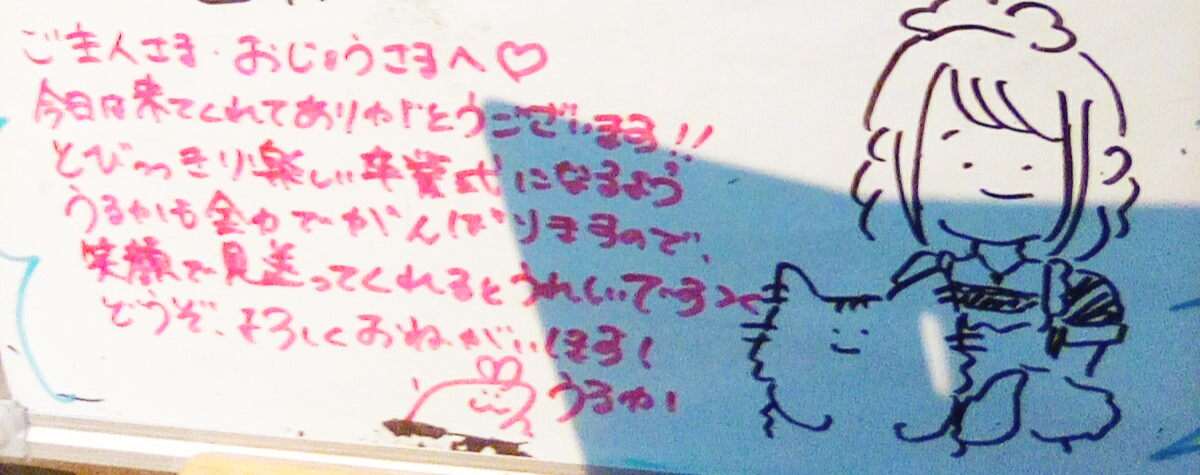 ご主人さま・おじょうさまへ♡
今日は来てくれてありがとうございます!!
とびっきり楽しい卒業式になるよう
うるかも全力でがんばりますので、
笑顔で見送ってくれるとうれしいです><
どうぞ、よろしくおねがいします!
うるか!